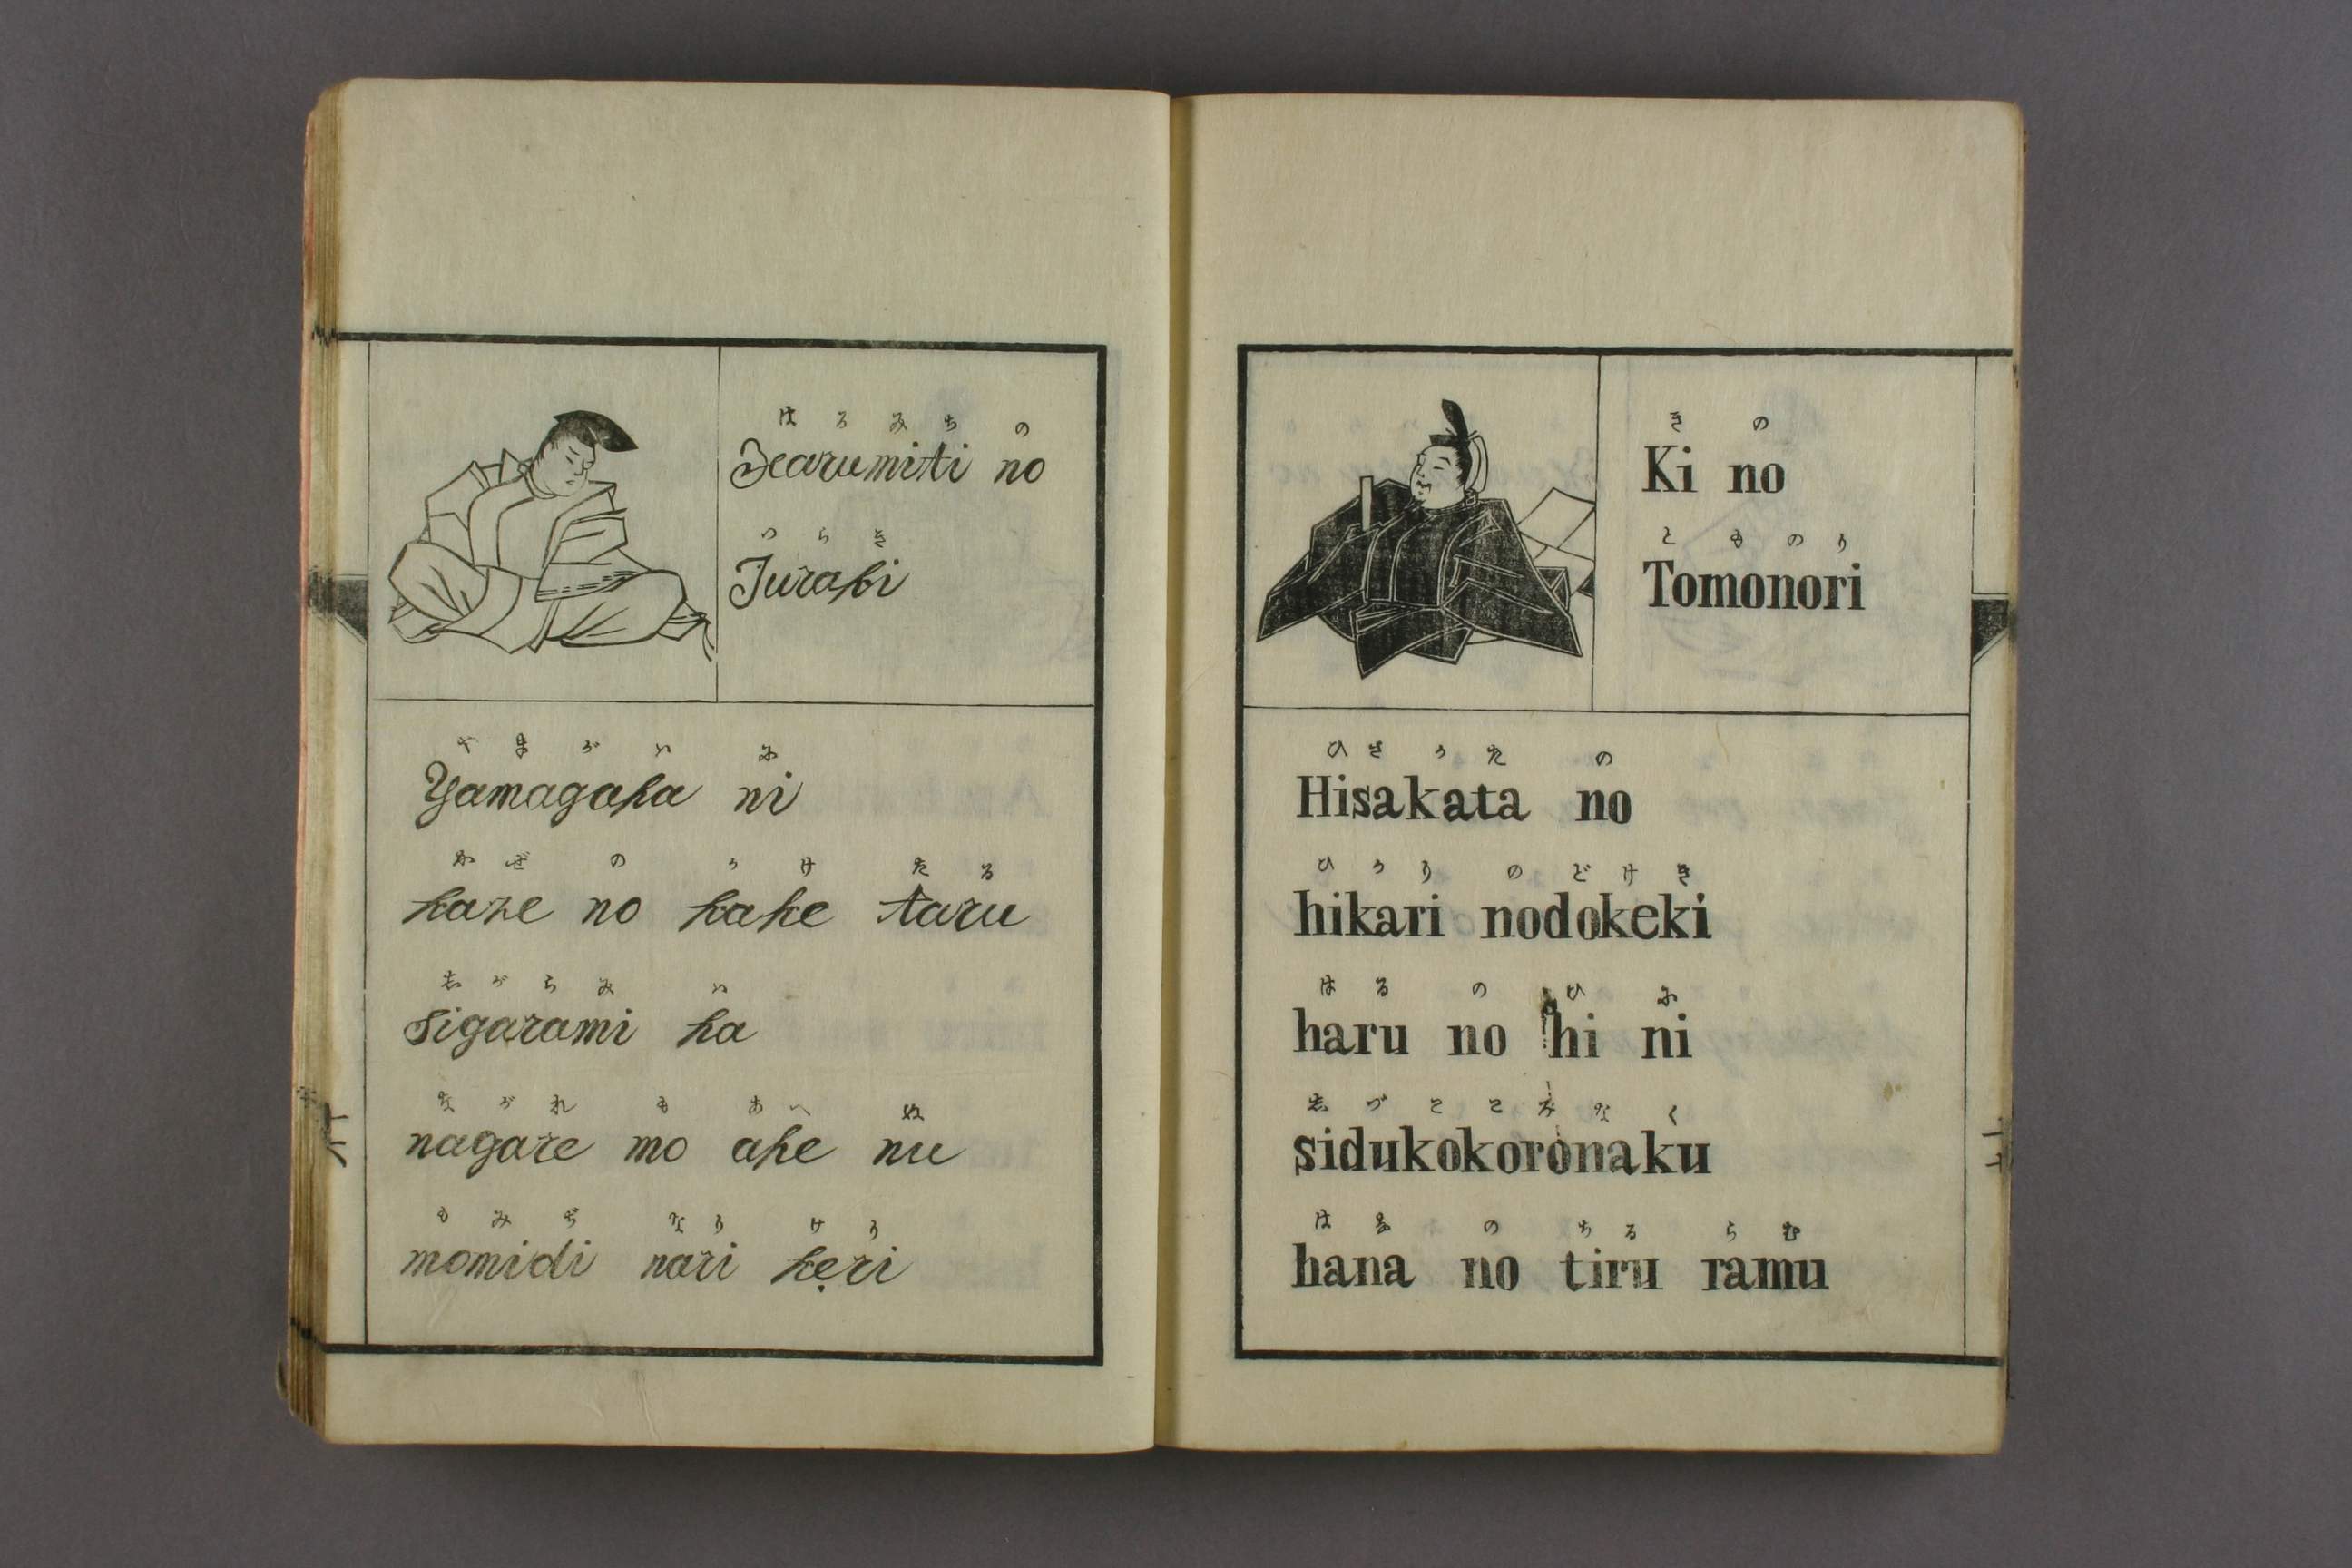 はるみちの
Harumiti no
つらき
Turaki
やまがはに
Yamagaha ni
かぜ の かけ たる
kaze no kake taru
しがらみ は
sigarami ha
ながれ も あへ ぬ
nagare mo ahe nu
もみぢ なり けり
momidi nari keri
き の
Ki no
とものり
Tomonori
ひさかた の
Hisakata no
ひかり のどけき
hikari nodokeki
はる の ひ に
haru no hi ni
しづこころなく
sidukokoronaku
はな の ちる らむ
hana no tiru ramu